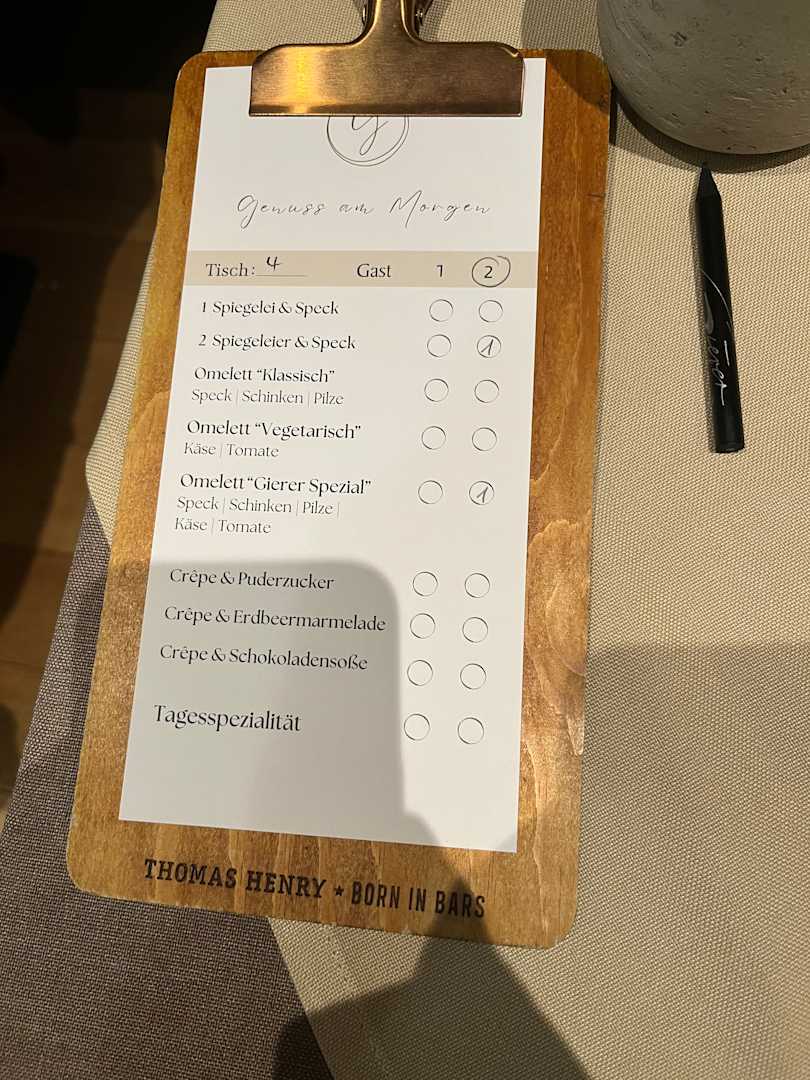 Genuss am Morgen
Tisch: 4 Gast 1 2
1 Spiegelei & Speck
2 Spiegeleier & Speck 1
Omelett “Klassisch”
Speck | Schinken | Pilze
Omelett “Vegetarisch”
Käse | Tomate
Omelett “Gierer Spezial” 1
Speck | Schinken | Pilze |
Käse | Tomate
Crêpe & Puderzucker
Crêpe & Erdbeermarmelade
Crêpe & Schokoladensoße
Tagesspezialität
THOMAS HENRY ★ BORN IN BARS
Gierer